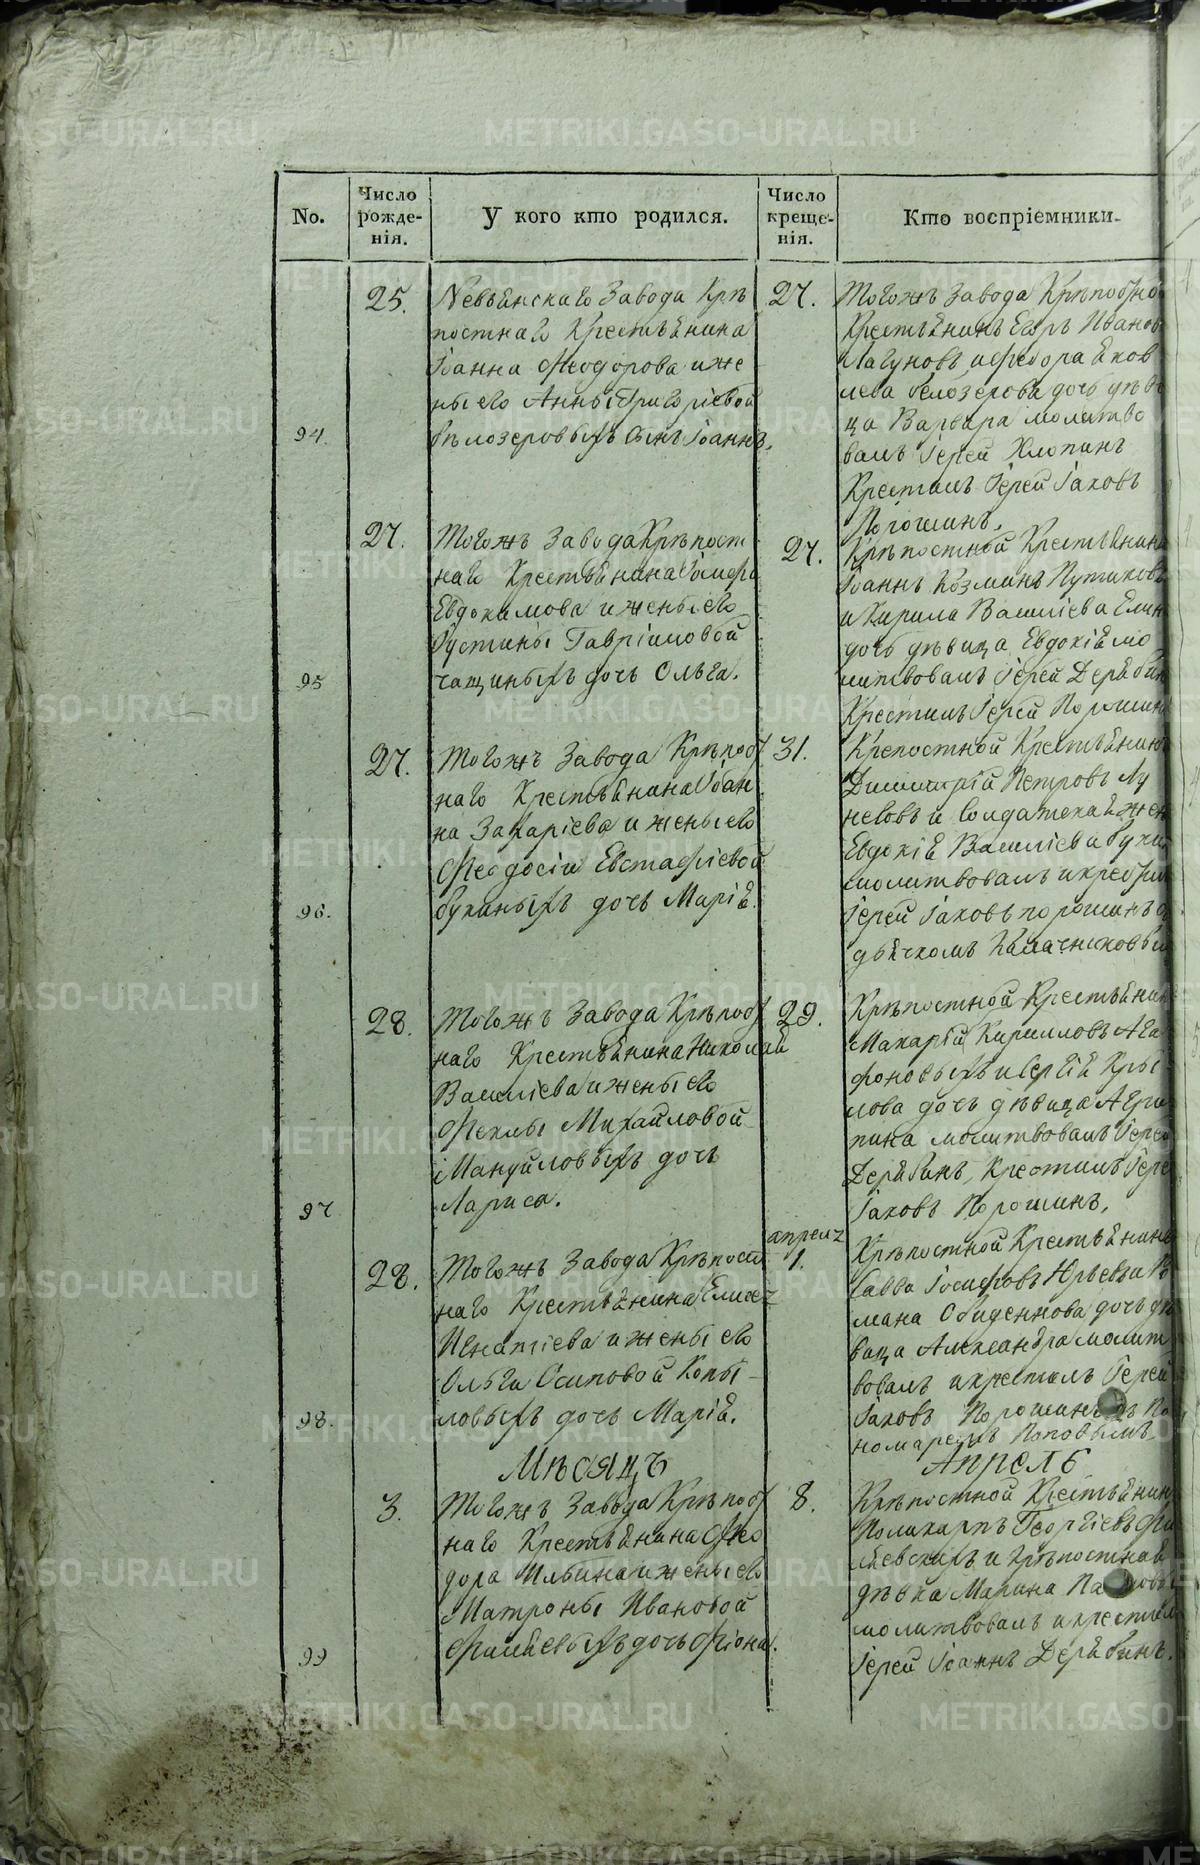 No.
Число рожде-нія.
У кого кто родился.
Число креще-нія.
Кто воспріемники.
94.
25.
Невьянскаго Завода Крѣ
постнаго Крестьянина
Іоанна Феодорова и же
ны его Анны Григоріевой
Бѣлозеровыхъ сынъ Іоаннъ.
27.
Тогожъ Завода Крѣпостно
Крестьянинъ Егоръ Иванов
Лагуновъ и Федора Яков
лева Белозерова дочь дѣв
ца Варвара молитво
валъ Іерей Хлопинъ
Крестилъ Іерей Іаковъ
Порошинъ.
95
27.
Тогожъ Завода Крѣпост
наго Крестьянина
Евдокимова и жены его
Іустины Гавріиловой
Чащиныхъ дочь Ольга.
27.
Крѣпостной Крестьянинъ
Іоаннъ Козминъ Путиковъ
и Кирила Василіева
дочь дѣвица Евдокія мо
литвовалъ Іерей Дерябин
Крестилъ Іерей Порошин
96.
27.
Тогожъ Завода Крѣпост
наго Крестьянина Іоан
на Захаріева и жены его
Феодосіи Евстафіевой
Букиныхъ дочь Марія.
31.
Крепостной Крестьянинъ
Димитрій Петровъ Лу
неговъ и Солдатская жен
Евдокія Василіева Буки
молитвовалъ и крестил
Іерей Іаковъ Порошинъ с
дьячкомъ Калачниковым
97
28.
Тогожъ Завода Крѣпост
наго Крестьянина Николай
Василіева и жены его
Феклы Михайловой
Мануйловыхъ дочь
Лариса.
29.
Крѣпостной Крестьянин
Макарій Кирилловъ Ага
фоновыхъ и Сергія Кры
лова дочь дѣвица Агри
пина молитвовалъ Іерей
Дерябинъ, Крестилъ Іере
Іаковъ Порошинъ.
98.
28.
Тогожъ Завода Крѣпост
наго Крестьянина
Игнатіева и жены его
Ольги Осиповой Копы
ловыхъ дочь Марія.
апреля
1.
Крѣпостной Крестьянинъ
Савва Іосифовъ Юрьевъ и Ро
мана Обиденнова дочь дѣ
вица Александра молит
вовалъ и крестилъ Іерей
Іаковъ Порошинъ съ По
номаремъ Поповымъ.
Мѣсяцъ
Апрель
99
3.
Тогожъ Завода Крѣпост
наго Крестьянина Фео
дора Ильина и жены его
Матроны Ивановой
дочь Фіона.
8.
Крѣпостной Крестьянин
Поликарпъ Георгіевъ
и Крѣпостная
дѣвка Марина
молитвовалъ и крестил
Іерей Іоаннъ Дерябинъ.
METRIKI.GASO-URAL.RU